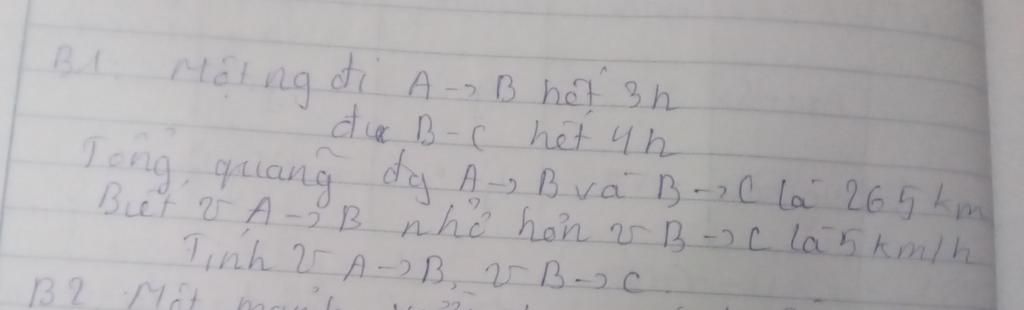 B1. Một ng đi A → B hết 3h
đi B - C hết 4h
Tổng quãng đg A → B và B → C là 265 km
Biết v A → B nhỏ hơn v B → C là 5 km/h
Tính v A → B, v B → C.
B2. Một